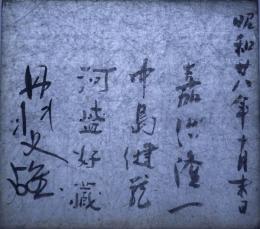 昭和廿八年十月末日
嘉治隆一
中島健蔵
河盛好蔵